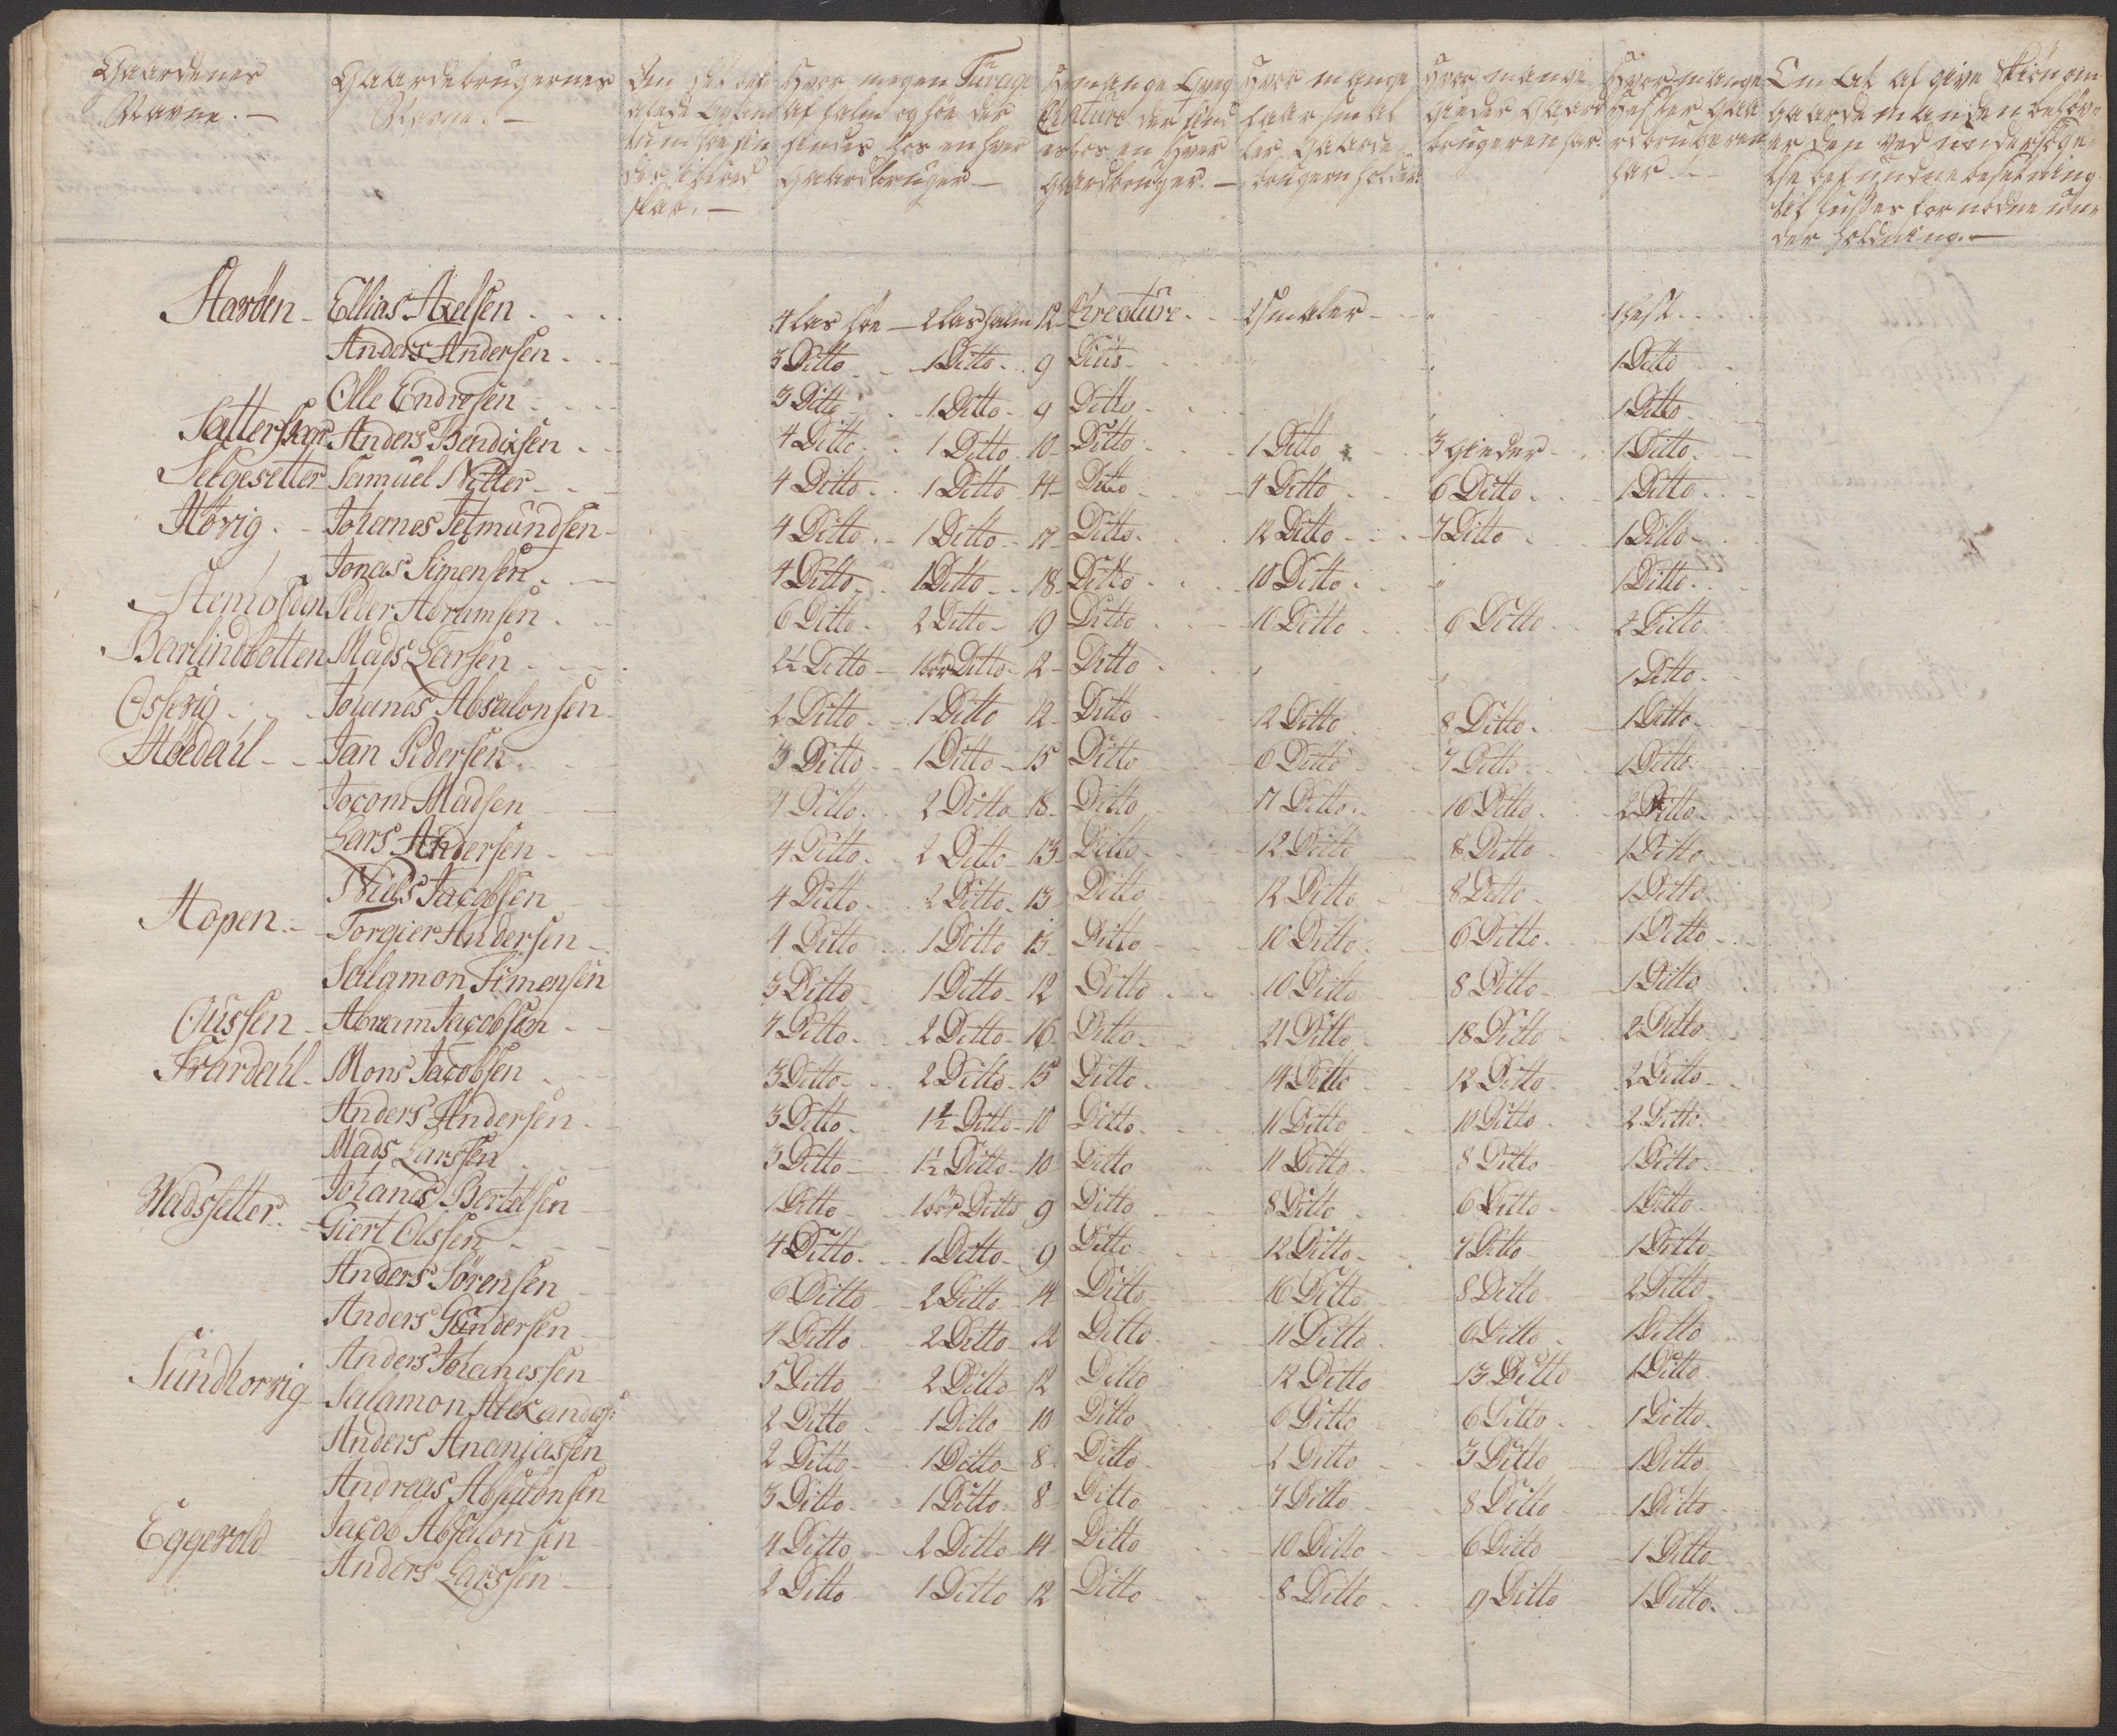 Gaardenes Navne. —
Gaardebrugernes Navne. —
Hvor megen Furage af halm og höe der findes hos en hver Gaardbruger —
Creature der findes hos en hver gaardbruger. —
Hvor mange Smaler Gaardebrugern holder
Hvor mange gieder Gaardbrugeren har.
Hvor mange Hester har. —
Om at af give Skiön om Gaardemanden behöver den ved undersögelse befundne besetning til huses fornödne underholdning. —
Staröen - Ellias Axelsen . . . 4 las höe — 2 las halm 12 Kreature . . 2 Smaler — „ 1 hest . . .
Anders Andersen . . 3 Ditto 1 Ditto . . 9 Dito „ 1 Ditto
Olle Endresen . . . 3 Ditto 1 Ditto - 9 Ditto „ 1 Ditto
Anders Bendixsen . . 4 Ditto 1 Ditto 10 Ditto 1 Ditto 3 gieder 1 Ditto
Selgesetter Samuel Nitter 4 Ditto 1 Ditto 14 Ditto 4 Ditto 6 Ditto 1 Ditto
Hövig . - Johanes Setmundsen 4 Ditto 1 Ditto 17 Ditto 12 Ditto 7 Ditto 1 Ditto
Jonas Simensen 4 Ditto 1 Ditto 18 Ditto 10 Ditto „ 1 Ditto
Peder Abramsen 6 Ditto 2 Ditto 19 Ditto 11 Ditto 6 Ditto 2 Ditto
Barlindbotten Mads Larsen 2½ Ditto 1 bör Ditto 12 Ditto „ „ 1 Ditto
Johanes Absalonsen 2 Ditto 1 Ditto 12 Ditto 12 Ditto 8 Ditto 1 Ditto
Jan Pedersen 3 Ditto 1 Ditto 15 Ditto 6 Ditto 7 Ditto 1 Ditto
Jacom Madsen 4 Ditto 2 Ditto 18 Ditto 17 Ditto 16 Ditto 2 Ditto
Lars Andersen 4 Ditto 2 Ditto 13 Ditto 12 Ditto 8 Ditto 1 Ditto
Niels Jacobsen 4 Ditto 2 Ditto 13 Ditto 12 Ditto 8 Ditto 1 Ditto
Hopen. - Torgier Andersen 4 Ditto 1 Ditto 13 Ditto 10 Ditto 6 Ditto 1 Ditto
Salamon Simensen 3 Ditto 1 Ditto 12 Ditto 10 Ditto 8 Ditto 1 Ditto
Abram Jacobsen 4 Ditto 2 Ditto 16 Ditto 21 Ditto 18 Ditto 2 Ditto
Mons Jacobsen 3 Ditto 2 Ditto 15 Ditto 14 Ditto 12 Ditto 2 Ditto
Anders Andersen 3 Ditto 1½ Ditto 10 Ditto 11 Ditto 10 Ditto 2 Ditto
Mads Larssen 3 Ditto 1½ Ditto 10 Ditto 11 Ditto 8 Ditto 1 Ditto
Johanes Bertelsen 1 Ditto 1 bör Ditto 9 Ditto 8 Ditto 6 Ditto 1 Ditto
Wadssetter. - Giert Olssen 4 Ditto 1 Ditto 9 Ditto 12 Ditto 7 Ditto 1 Ditto
Anders Sörensen 6 Ditto 2 Ditto 14 Ditto 16 Ditto 8 Ditto 2 Ditto
Anders Gundersen 4 Ditto 2 Ditto 12 Ditto 11 Ditto 6 Ditto 1 Ditto
Anders Johanessen 5 Ditto 2 Ditto 12 Ditto 12 Ditto 13 Ditto 1 Ditto
Sundhorvig Salamon Alexanders: 2 Ditto 1 Ditto 10 Ditto 6 Ditto 6 Ditto 1 Ditto
Anders Ananiassen 2 Ditto 1 Ditto 8 Ditto 2 Ditto 3 Ditto 1 Ditto
Andreas Absalonsen 3 Ditto 1 Ditto 8 Ditto 7 Ditto 8 Ditto 1 Ditto
Eggevold Jacob Absalonsen 4 Ditto 2 Ditto 14 Ditto 10 Ditto 6 Ditto 1 Ditto
Anders Larssen 2 Ditto 1 Ditto 12 Ditto 8 Ditto 9 Ditto 1 Ditto